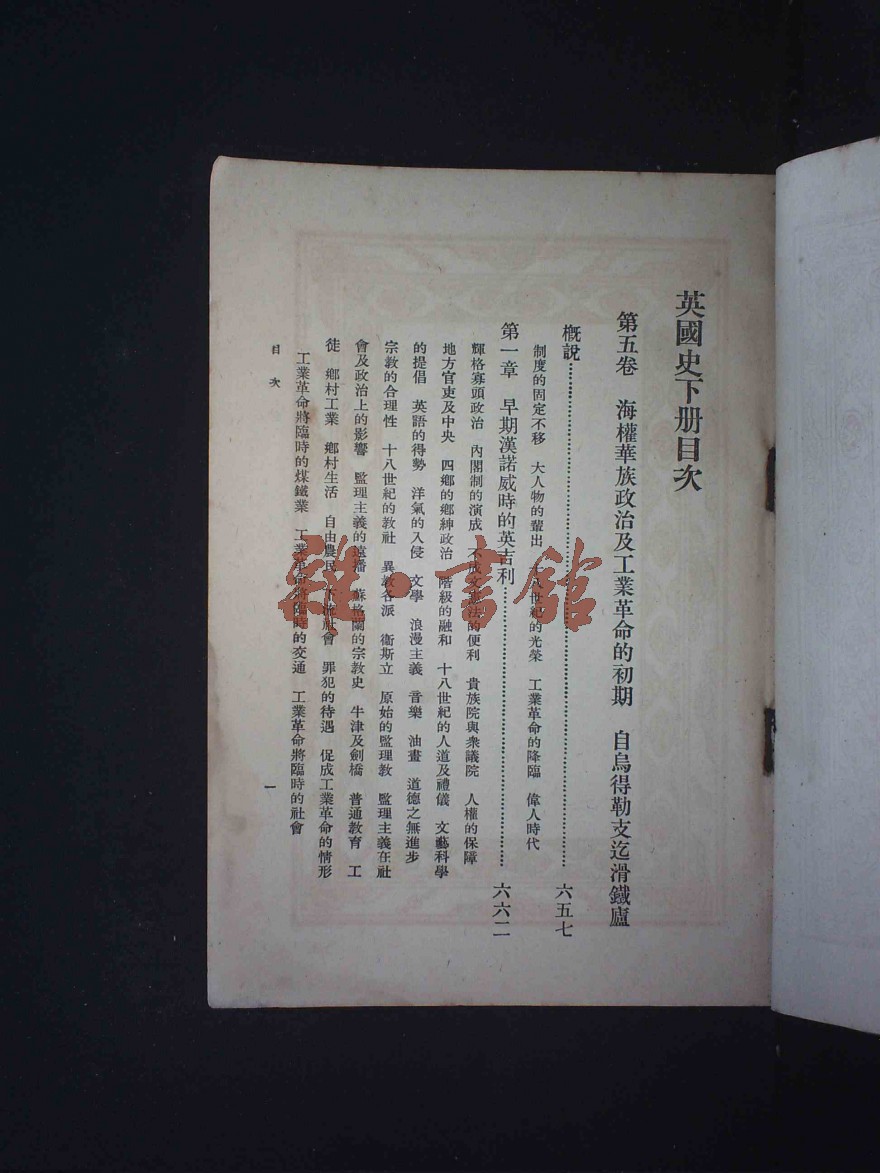 英國史下册目次
第五卷 海權華族政治及工業革命的初期 自烏得勒支迄滑鐵廬
概說……六五七
制度的固定不移 大人物的輩出 十八世紀的光榮 工業革命的降臨 偉人時代
第一章 早期漢諾威時的英吉利……六六二
輝格寡頭政治 內閣制的演成 不成文憲法的便利 貴族院與衆議院 人權的保障
地方官吏及中央 四鄉的鄉紳政治 階級的融和 十八世紀的人道及禮儀 文藝科學
的提倡 英語的得勢 洋氣的入侵 文學 浪漫主義 音樂 油畫 道德之無進步
宗教的合理性 十八世紀的教社 異教各派 衞斯立 原始的監理教 監理主義在社
會及政治上的影響 監理主義的遠播 蘇格蘭的宗教史 牛津及劍橋 普通教育 工
徒 鄉村工業 鄉村生活 自由農民 下流社會 罪犯的待遇 促成工業革命的情形
工業革命將臨時的煤鐵業 工業革命將臨時的交通 工業革命將臨時的社會
目次
一
雜·書館